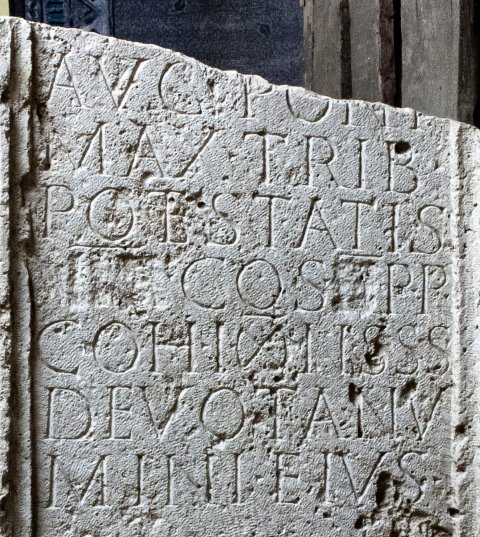 AVG PONT
MAX TRIB
POTESTATIS
COS PP
COH I
DEVOTA NV
MINI EIVS